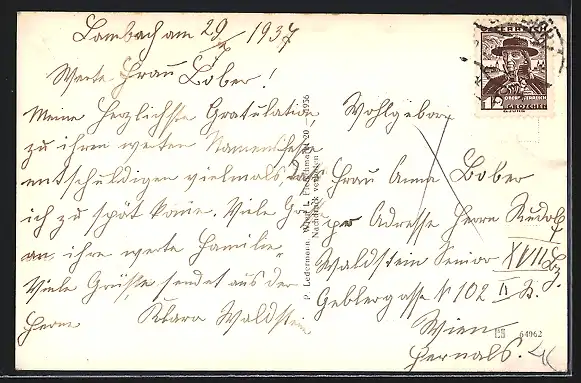 Lambach am 29/X 1937
Werte Frau Bober!
Meine Herzlichste Gratulation
zu ihren werten Namensfeste
entschuldigen vielmals, daß
ich zu spät komme. Viele Gr
an ihre werte Familie.
Viele Grüße sendet aus der
Ferne Klara Waldstein
P. Ledermann, Wien I, Fleischmarkt 20 1936
Nachdruck verboten
Wohlgeboren
Frau Anna Bober
per Adresse Herrn Rudolf
Waldstein Senior XVII Bz.
Geblergasse N 102 II St.
Wien
Hernals.
64962
12
GROSCHEN